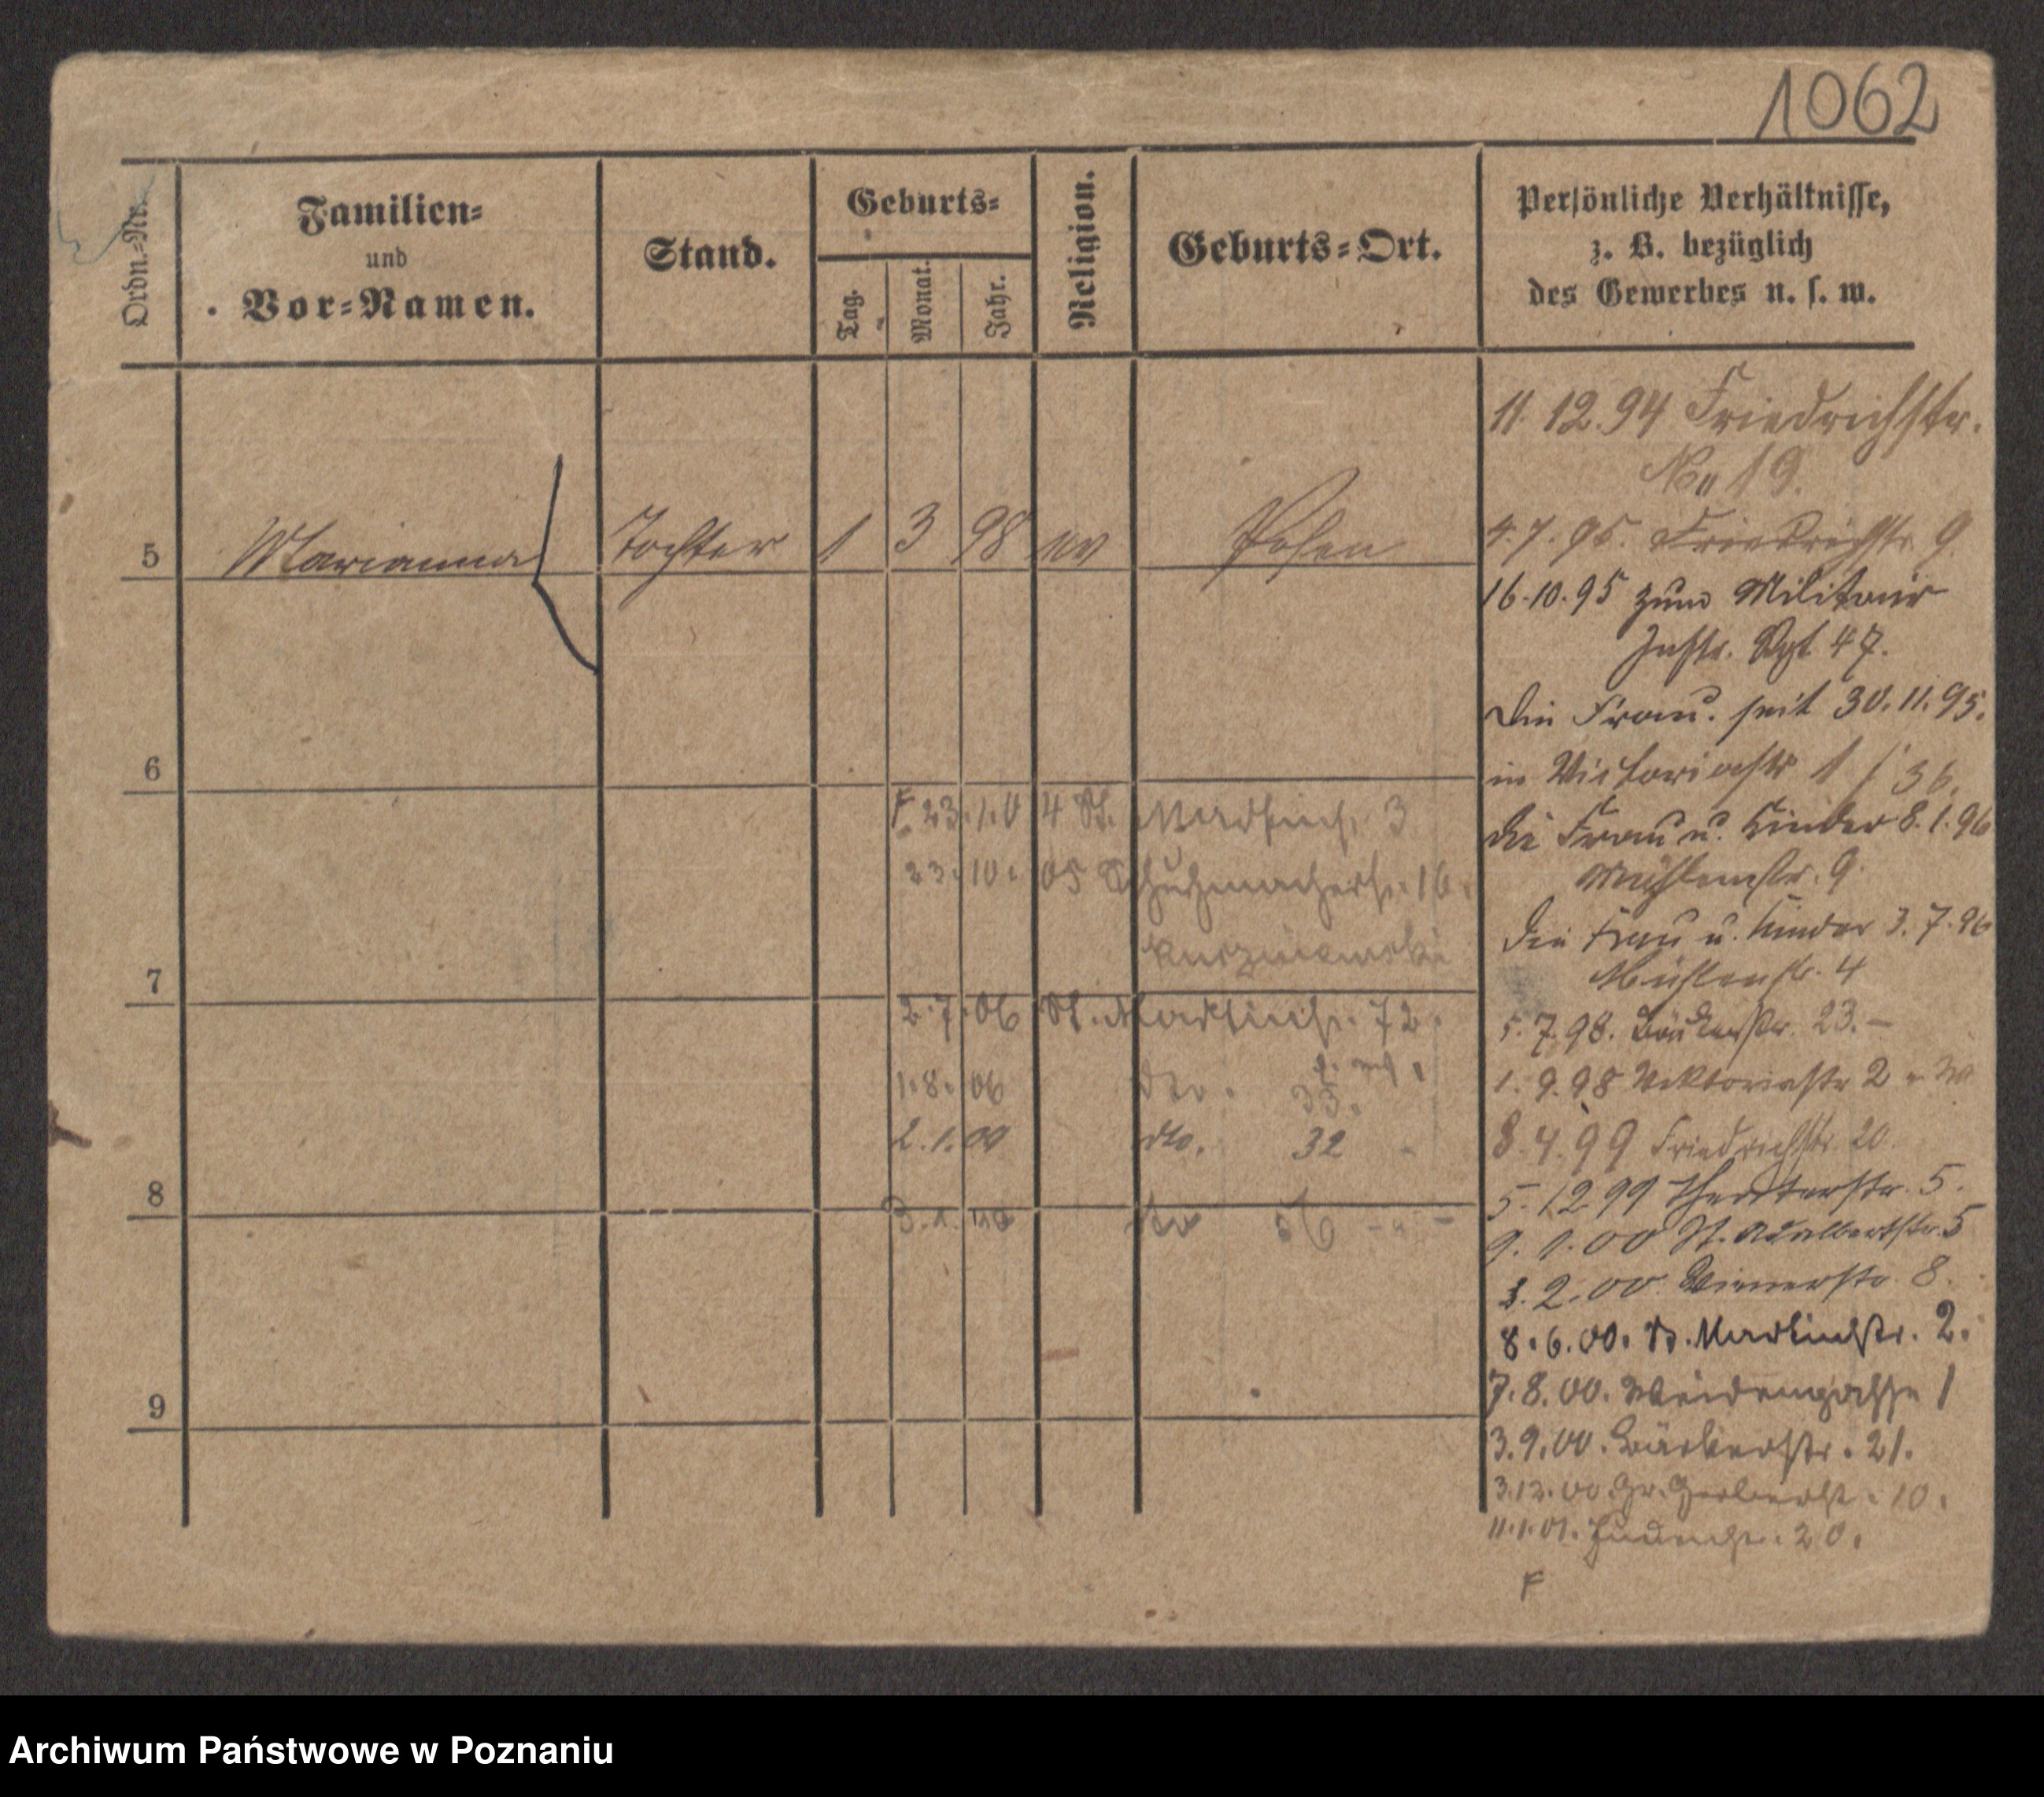 1062
Ordn.-Nr.
Familien-
und
Vor-Namen.
Stand.
Geburts-
Tag.
Monat.
Jahr.
Religion.
Geburts-Ort.
Persönliche Verhältnisse,
z. B. bezüglich
des Gewerbes u. s. w.
11. 12. 94 Friedrichstr.
No 19.
5 Marianna Tochter 1 3 98 ev Posen
4. 7. 95. Friedrichstr 9.
16. 10. 95 zum Militair
Inftr. Rgt 47.
Die Frau. seit 30. 11. 95.
in Victoriastr 1
6
die Frau u. Kinder 8. 1. 96
Mühlenstr. 9.
Die Frau u. Kinder 3. 7. 96
Mühlenstr. 4
5. 7. 98. Bäckerstr. 23. –
1. 9. 98 Viktoriastr 2
8. 4. 99 Friedrichstr. 20.
5. 12 99 Theaterstr. 5.
9. 1. 00 St. Adalbertstr. 5
3. 2. 00. Wienerstr 8.
8. 6. 00. St. Martinstr. 2.
7. 8. 00. Weidengasse 1
3. 9. 00. Bäckerstr. 21.
3. 12. 00. Gr. Gerberstr. 10.
11. 1. 01. Judenstr. 20.
F
F 23. 1. 04 St. Martinstr. 3
23. 10. 05 Schuhmacherstr. 16.
7
2. 7. 06 St. Martinstr. 72.
1. 8. 06 dto. 33.
dto. 32
8
dto 56
9
Archiwum Państwowe w Poznaniu